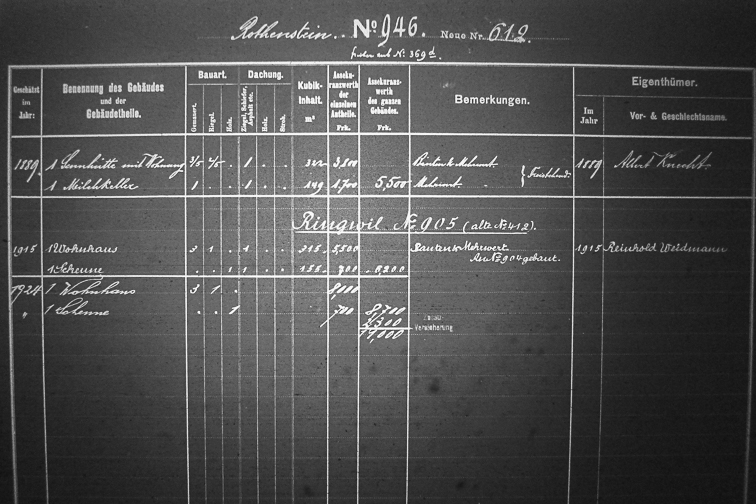 Rothenstein. No 946. Neue Nr. 612.
früher sub No: 369d.
Geschätzt im Jahr:
Benennung des Gebäudes und der Gebäudetheile.
Bauart.
Gemauert. Riegel. Holz.
Dachung.
Ziegel, Schiefer, Asphalt etc. Holz. Stroh.
Kubik-Inhalt. m³
Assekuranzwerth der einzelnen Antheile. Frk.
Assekuranzwerth des ganzen Gebäudes. Frk.
Bemerkungen.
Eigenthümer.
Im Jahr
Vor- & Geschlechtsname.
1889. 1 Sennhütte mit Wohnung 3/5 2/5 . 1 . . 322 3,800 Bauten & Mehrwert. 1889 Albert Knecht.
1 Milchkeller 1 . . 1 . . 149 1,700 5,500 Mehrwert. } Freistehend.
Ringwil No 905 (alte No 412).
1915 1 Wohnhaus 3 1 . 1 . . 315 5,500 Bauten & Mehrwert 1915 Reinhold Weidmann
1 Scheune . . 1 1 . . 155 700 6,200 An No 904 gebaut.
1924 1 Wohnhaus 3 1 . 8,000
" 1 Scheune . . 1 700 8,700
2,300 Versicherung
11,000